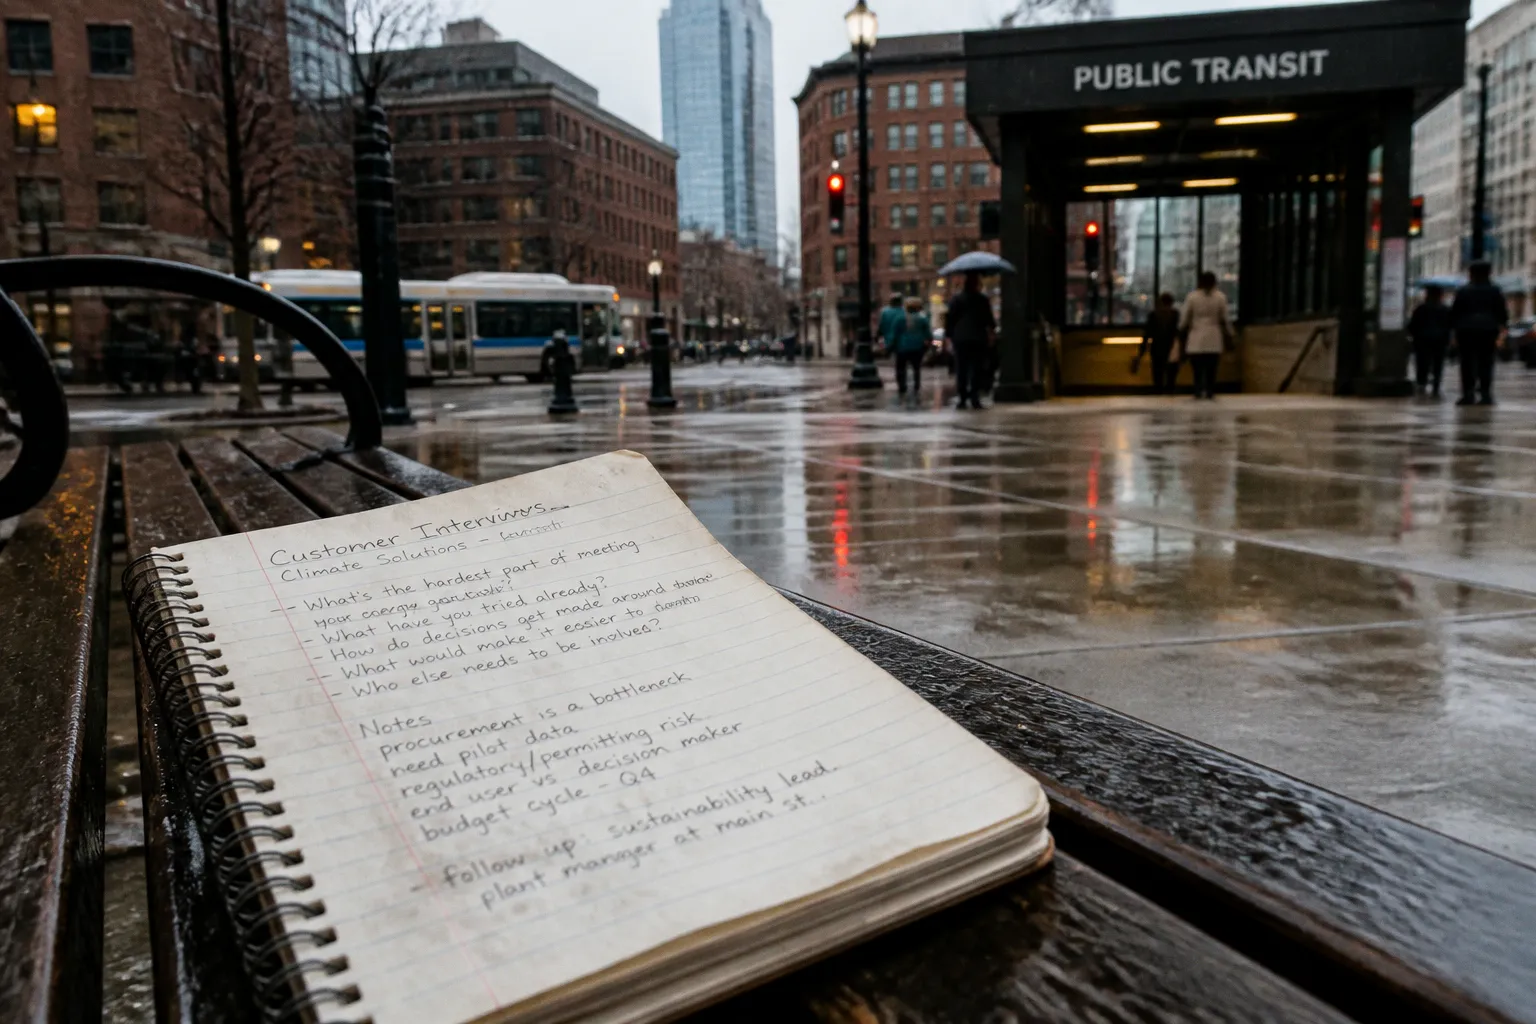 PUBLIC TRANSIT
Customer Interviws
Climate Solutions –
- What's the hardest part of meeting
your
- What have you tried already?
- How do decisions get made around
- What would make it easier to
- Who else needs to be involves?
Notes
procurement is a bottleneck
need pilot data
regulatory/permitting risk
end user vs decision maker
budget cycle - Q4
- follow up: sustainability lead.
plant manager at main st..